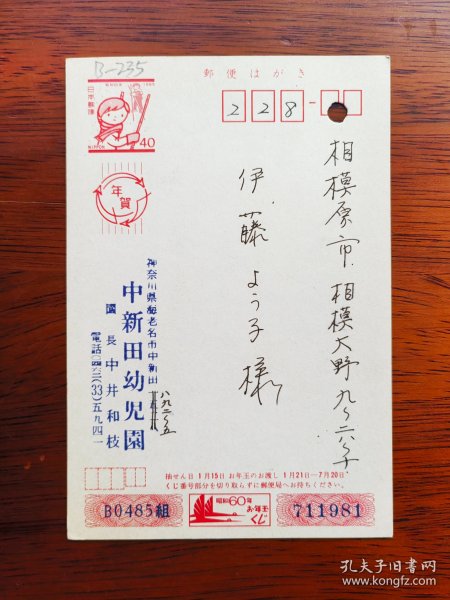 B-235
郵便はがき
日本郵便
NIPPON
40
228-
年賀
相模原市相模大野九〜二八〜
伊藤よう子様
神奈川県海老名市中新田
八九二〜五
中新田幼児園
園長中井和枝
(33)五九四一
抽せん日 1月15日 お年玉のお渡し 1月21日―7月20日
くじ番号部分を切り取らずに郵便局へお持ちください。
B0485組
昭和60年
お年玉
くじ
711981
孔夫子旧书网
www.kongfz.com